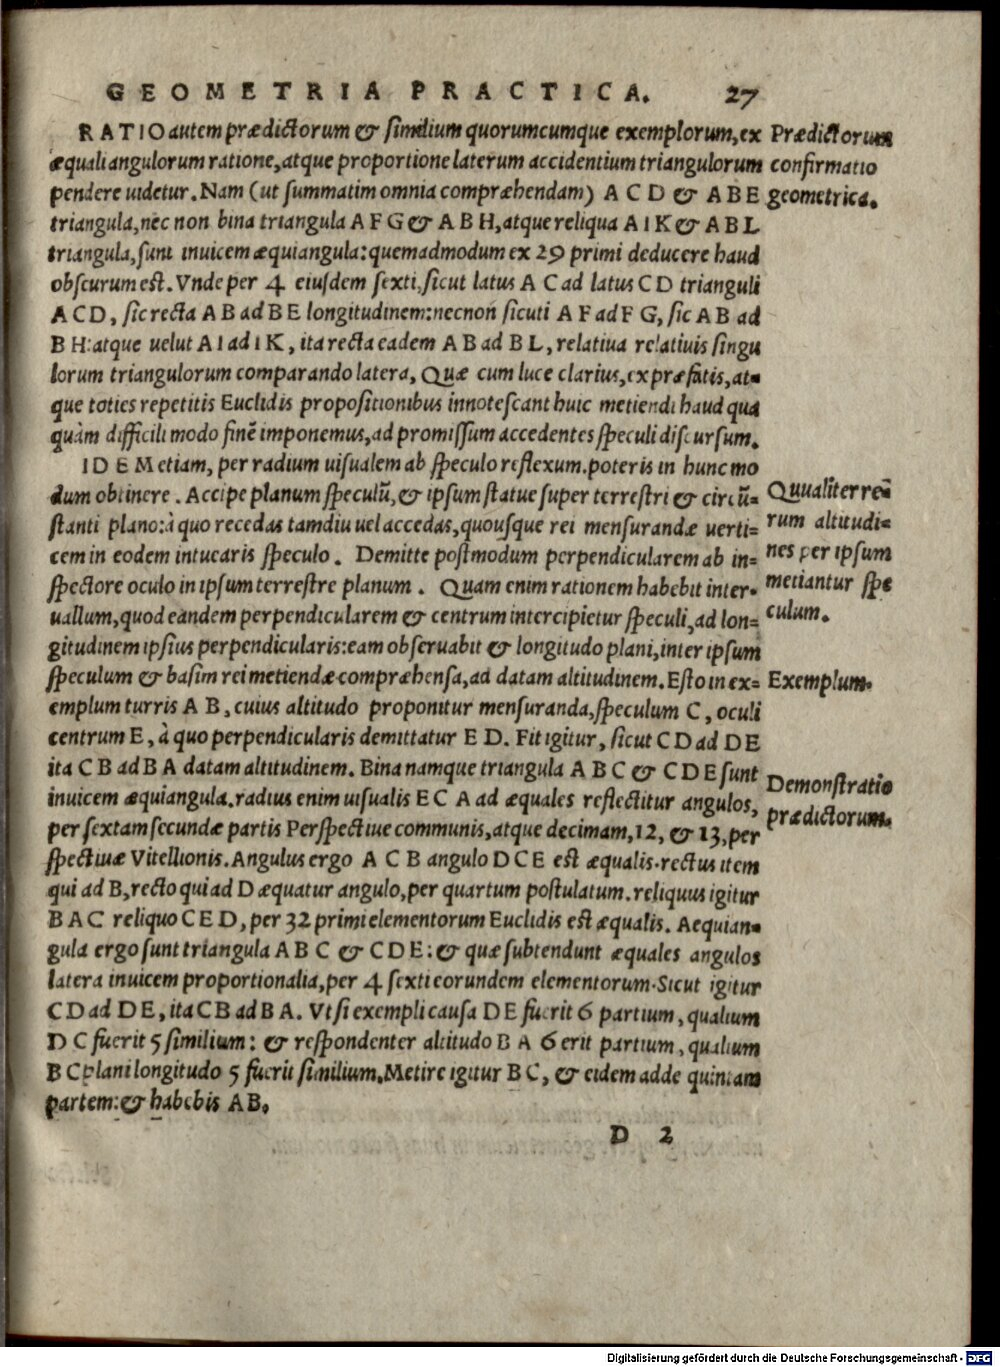 GEOMETRIA PRACTICA. 27
RATIO autem prædictorum & similium quorumcumque exemplorum, ex
æquali angulorum ratione, atque proportione laterum accidentium triangulorum
pendere uidetur. Nam (ut summatim omnia compræhendam) A C D & A B E
triangula, nec non bina triangula A F G & A B H, atque reliqua A I K & A B L
triangula, sunt inuicem æquiangula: quemadmodum ex 29 primi deducere haud
obscurum est. Vnde per 4 eiusdem sexti, sicut latus A C ad latus C D trianguli
A C D, sic recta A B ad B E longitudinem: necnon sicuti A F ad F G, sic A B ad
B H: atque uelut A I ad I K, ita recta eadem A B ad B L, relatiua relatiuis singu
lorum triangulorum comparando latera, Quæ cum luce clarius, ex præfatis, at=
que toties repetitis Euclidis propositionibus innotescant huic metiendi haud qua
quàm difficili modo finē imponemus, ad promissum accedentes speculi discursum.
Prædictorum
confirmatio
geometrica.
IDEM etiam, per radium uisualem ab speculo reflexum. poteris in hunc mo
dum obtinere. Accipe planum speculū, & ipsum statue super terrestri & circū=
stanti plano: à quo recedas tamdiu uel accedas, quousque rei mensurandæ uerti=
cem in eodem intucaris speculo. Demitte postmodum perpendicularem ab in=
spectore oculo in ipsum terrestre planum. Quam enim rationem habebit inter=
uallum, quod eandem perpendicularem & centrum intercipietur speculi, ad lon=
gitudinem ipsius perpendicularis: eam obseruabit & longitudo plani, inter ipsum
speculum & basim rei metiendæ compræhensa, ad datam altitudinem. Esto in ex=
emplum turris A B, cuius altitudo proponitur mensuranda, speculum C, oculi
centrum E, à quo perpendicularis demittatur E D. Fit igitur, sicut C D ad D E
ita C B ad B A datam altitudinem. Bina namque triangula A B C & C D E sunt
inuicem æquiangula. radius enim uisualis E C A ad æquales reflectitur angulos,
per sextam secundæ partis Perspectiue communis, atque decimam, 12, & 13, per
spectiuæ Vitellionis. Angulus ergo A C B angulo D C E est æqualis. rectus item
qui ad B, recto qui ad D æquatur angulo, per quartum postulatum. reliquus igitur
B A C reliquo C E D, per 32 primi elementorum Euclidis est æqualis. Aequian=
gula ergo sunt triangula A B C & C D E: & quæ subtendunt æquales angulos
latera inuicem proportionalia, per 4 sexti eorundem elementorum. Sicut igitur
C D ad D E, ita C B ad B A. Vt si exempli causa D E fuerit 6 partium, qualium
D C fuerit 5 similium: & respondenter altitudo B A 6 erit partium, qualium
B C plani longitudo 5 fuerit similium. Metire igitur B C, & eidem adde quintam
partem: & habebis A B.
Qualiter rē
rum altitudi=
nes per ipsum
metiantur spe
culum.
Exemplum.
Demonstratio
prædictorum.
D 2
Digitalisierung gefördert durch die Deutsche Forschungsgemeinschaft - DFG